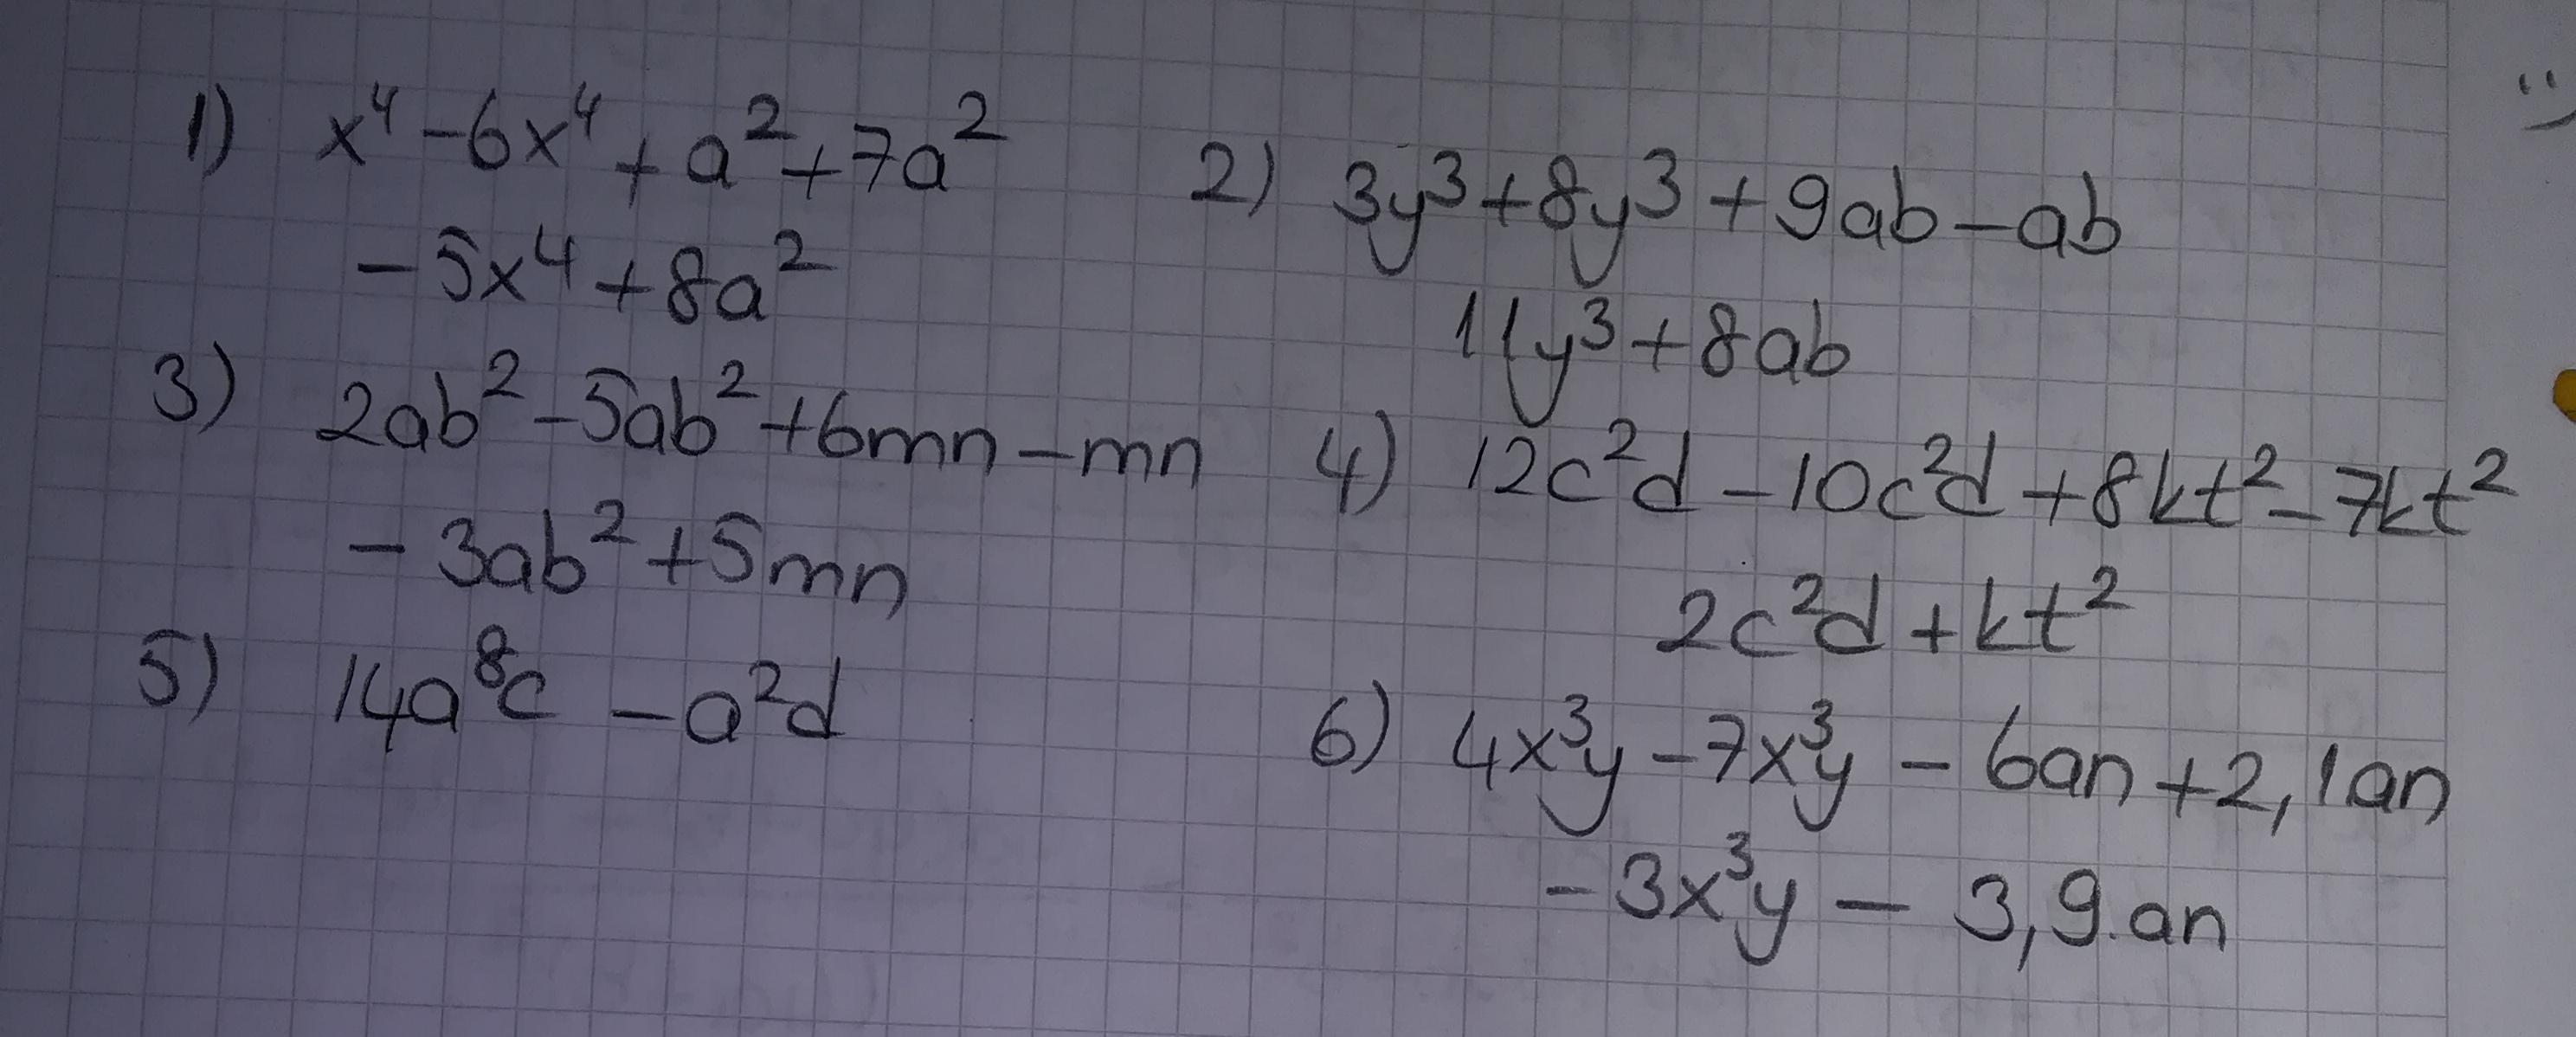 1) x⁴ - 6x⁴ + a² + 7a²
- 5x⁴ + 8a²
2) 3y³ + 8y³ + 9ab - ab
11y³ + 8ab
3) 2ab² - 5ab² + 6mn - mn
- 3ab² + 5mn
4) 12c²d - 10c²d + 8kt² - 7kt²
2c²d + kt²
5) 14a⁸c - a²d
6) 4x³y - 7x³y - 6an + 2,1an
- 3x³y - 3,9.an